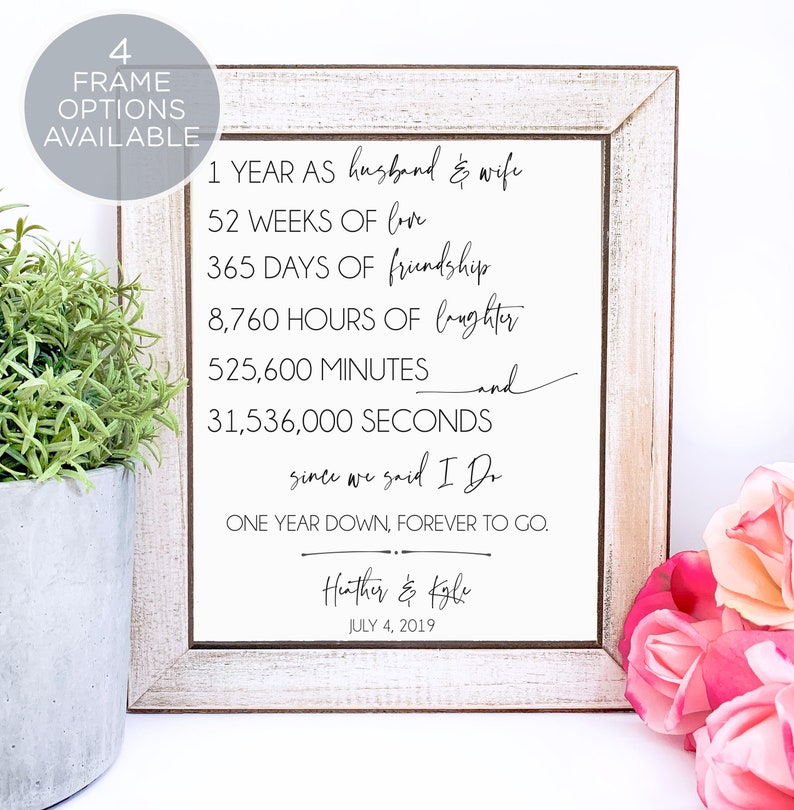 4
FRAME
OPTIONS
AVAILABLE
1 YEAR AS husband & wife
52 WEEKS OF love
365 DAYS OF friendship
8,760 HOURS OF laughter
525,600 MINUTES and
31,536,000 SECONDS
since we said I Do
ONE YEAR DOWN, FOREVER TO GO.
Heather & Kyle
JULY 4, 2019